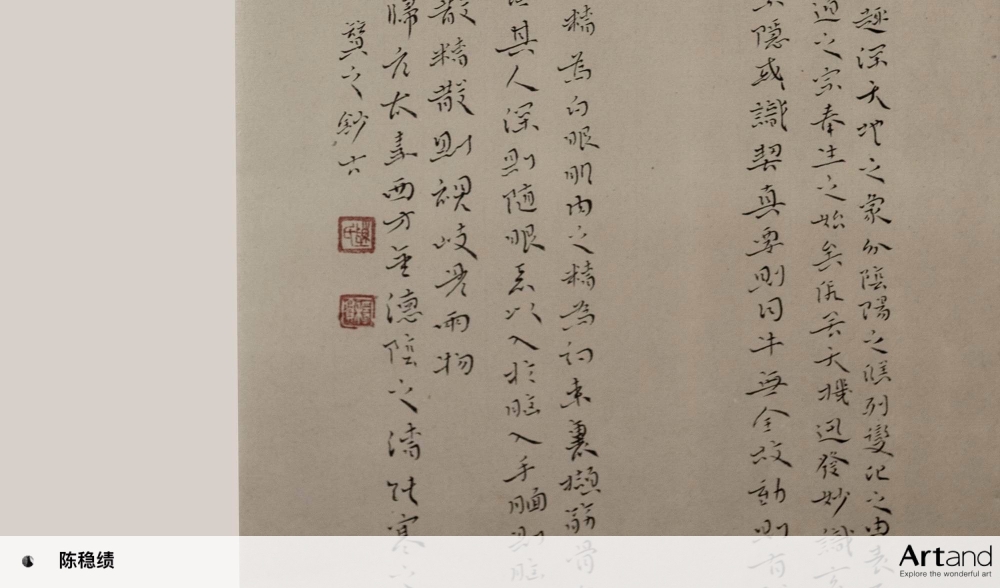 趣深天地之象分陰陽之候列變化之由表
道之宗奉生之始矣假若天機迅發妙識玄
隱或識契真要則目牛無全故動則有
精為白眼眼肉之精為約束裹擷筋骨
其人深則隨眼系以入於腦入于腦則腦
散精散則視岐見兩物
歸 太素西方金德陰之 寒之
之鈔六
陈稳绩
Artand
Explore the wonderful art